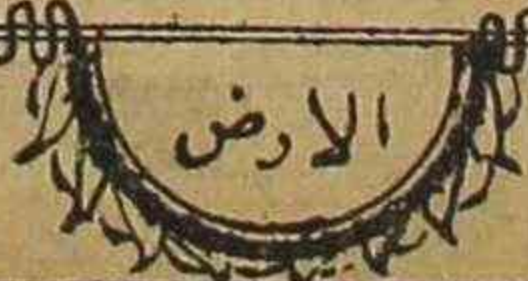 الارض